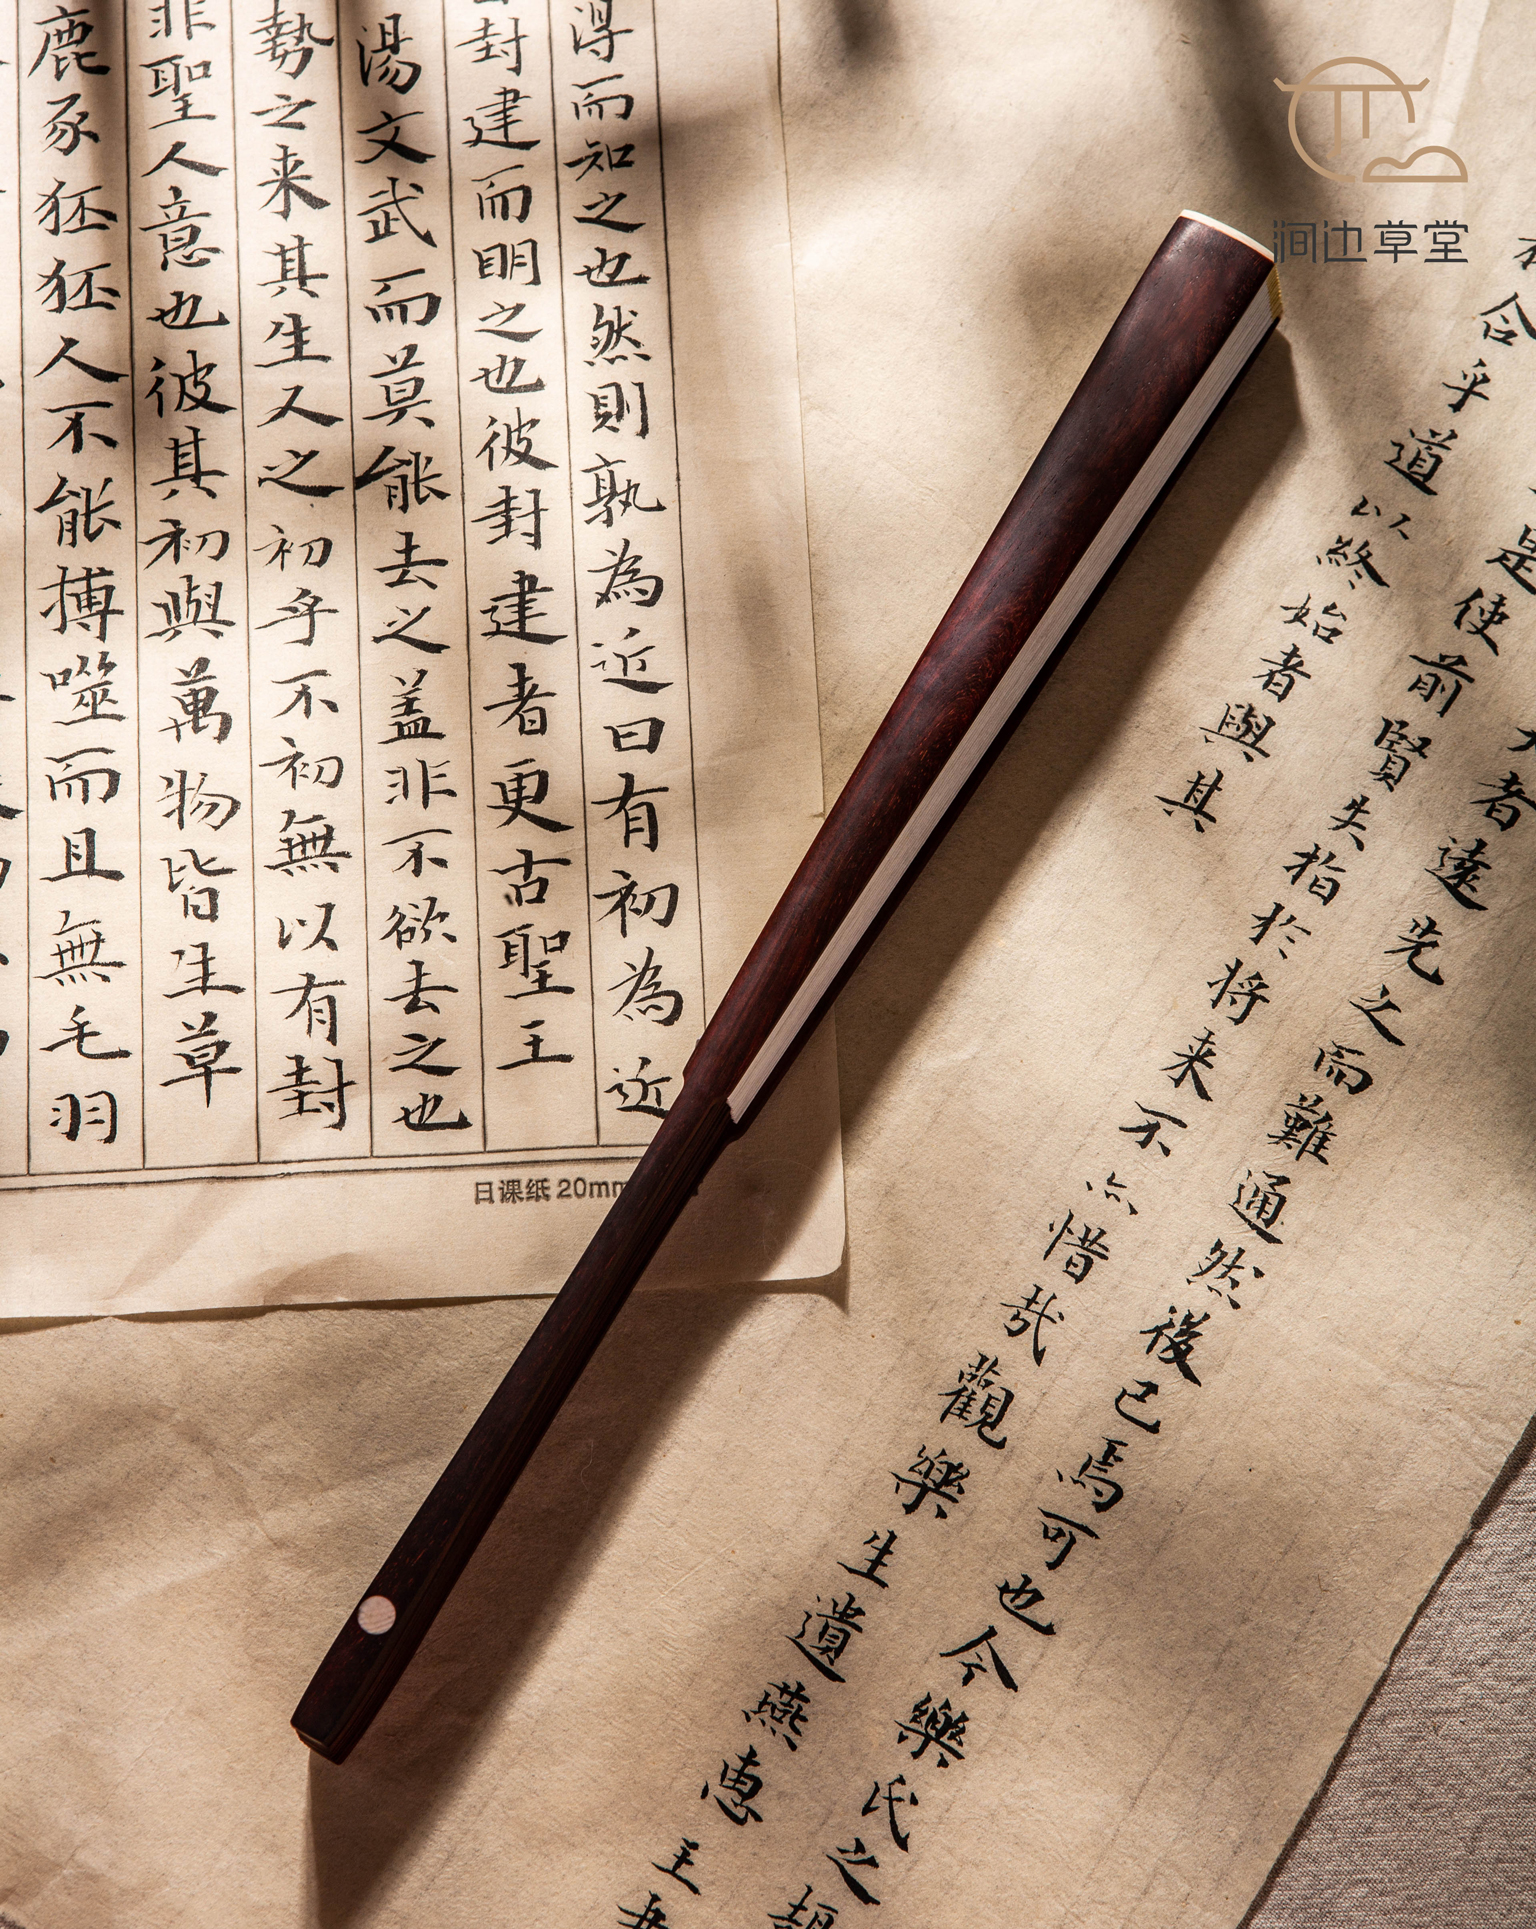 涧边草堂
得而知之也然則孰為近曰有初為近
封建而明之也彼封建者更古聖王
湯文武而莫能去之蓋非不欲去之也
勢之来其生又之初乎不初無以有封
非聖人意也彼其初與萬物皆生草
鹿豕狉狉人不能搏噬而且無毛羽
日课纸 20mm
者遠先之而難通然後已焉可也今樂氏之
是使前賢失指於将来不亦惜哉觀樂生遺燕惠王
合乎道以終始者與其